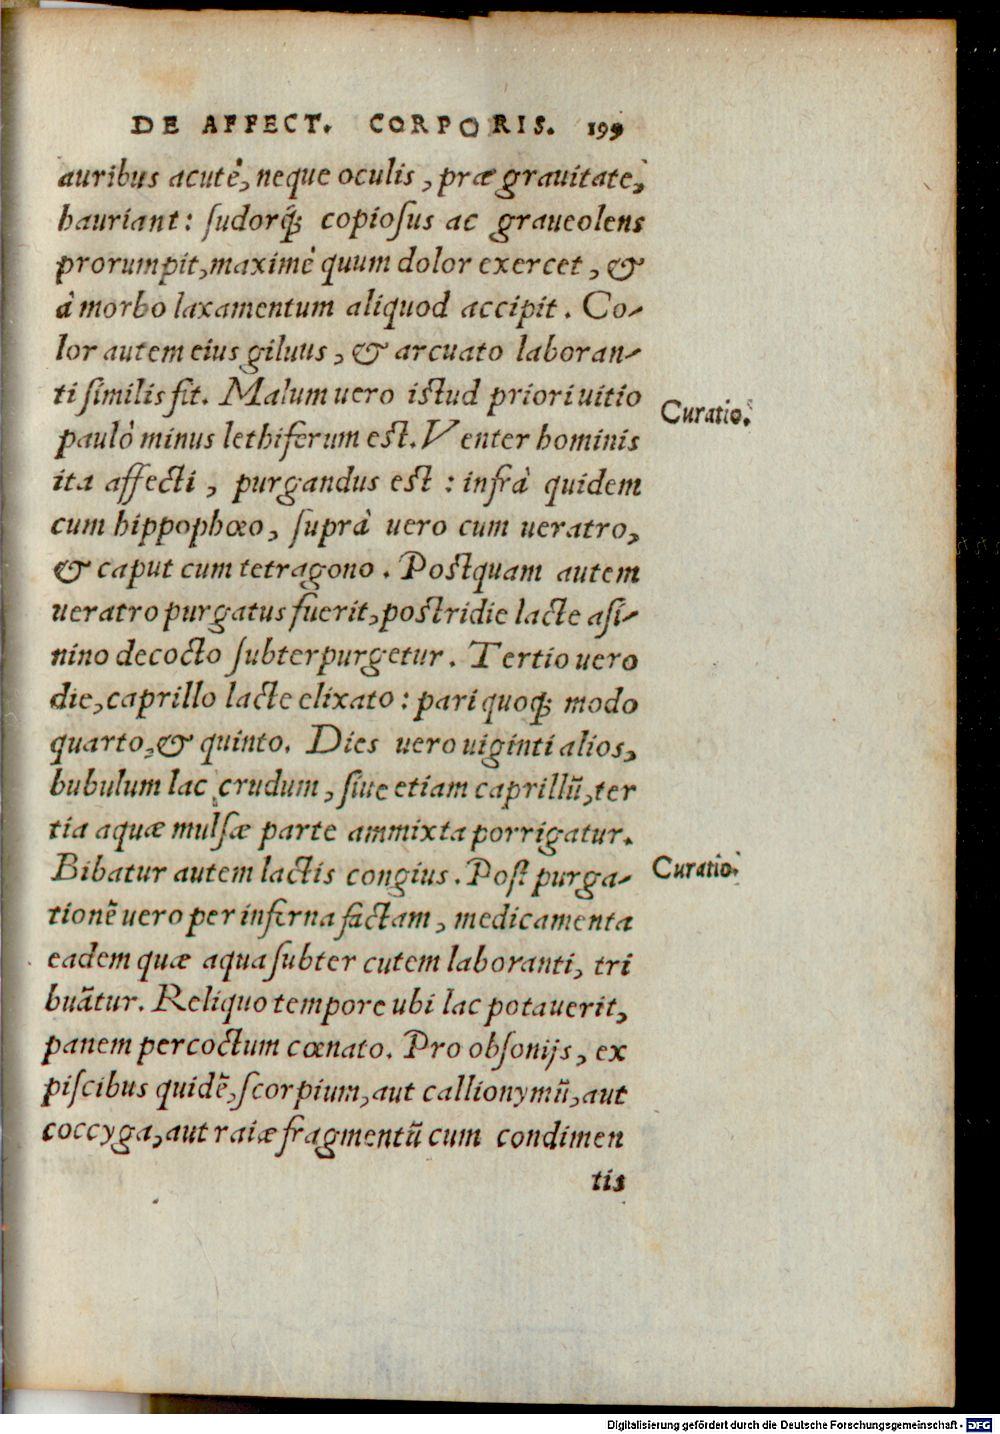 DE AFFECT. CORPORIS. 199
auribus acutè, neque oculis, præ grauitate,
hauriant: ſudorq́; copioſus ac graueolens
prorumpit, maximè quum dolor exercet, &
à morbo laxamentum aliquod accipit. Co-
lor autem eius giluus, & arcuato laboran-
ti ſimilis fit. Malum uero iſtud priori uitio
paulò minus lethiferum eſt. Venter hominis
Curatio.
ita affecti, purgandus eſt: infrà quidem
cum hippophœo, ſuprà uero cum ueratro,
& caput cum tetragono. Poſtquam autem
ueratro purgatus fuerit, poſtridie lacte aſi-
nino decocto ſubterpurgetur. Tertio uero
die, caprillo lacte elixato: pari quoq; modo
quarto, & quinto. Dies uero uiginti alios,
bubulum lac crudum, ſiue etiam caprillū, ter
tia aquæ mulſæ parte ammixta porrigatur.
Bibatur autem lactis congius. Poſt purga-
Curatio.
tionē uero per inferna factam, medicamenta
eadem quæ aqua ſubter cutem laboranti, tri
buātur. Reliquo tempore ubi lac potauerit,
panem percoctum cœnato. Pro obſonijs, ex
piſcibus quidē, ſcorpium, aut callionymū, aut
coccyga, aut raiæ fragmentū cum condimen
tis
Digitalisierung gefördert durch die Deutsche Forschungsgemeinschaft - DFG